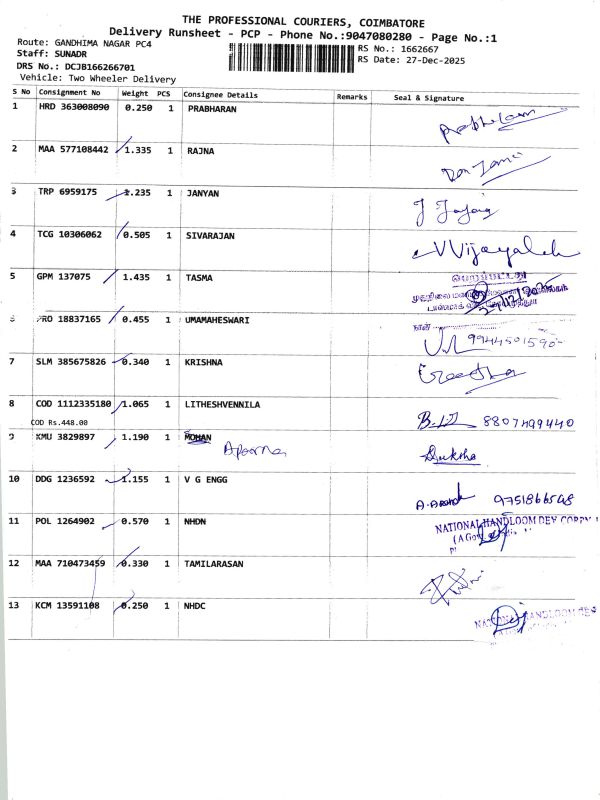 THE PROFESSIONAL COURIERS, COIMBATORE
Delivery Runsheet - PCP - Phone No.:9047080280 - Page No.:1
Route: GANDHIMA NAGAR PC4
Staff: SUNADR
DRS No.: DCJB166266701
Vehicle: Two Wheeler Delivery
RS No.: 1662667
RS Date: 27-Dec-2025
S No Consignment No Weight PCS Consignee Details Remarks Seal & Signature
1 HRD 363008090 0.250 1 PRABHARAN
2 MAA 577108442 1.335 1 RAJNA
3 TRP 6959175 1.235 1 JANYAN
4 TCG 10306062 0.505 1 SIVARAJAN
5 GPM 137075 1.435 1 TASMA
6 PRO 18837165 0.455 1 UMAMAHESWARI
9944501590
7 SLM 385675826 0.340 1 KRISHNA
8 COD 1112335180 1.065 1 LITHESHVENNILA
COD Rs.448.00
8807499440
9 KMU 3829897 1.190 1 MOHAN
10 DDG 1236592 1.155 1 V G ENGG
9751866548
11 POL 1264902 0.570 1 NHDN
NATIONAL HANDLOOM DEV CORPN
12 MAA 710473459 0.330 1 TAMILARASAN
13 KCM 13591108 0.250 1 NHDC
NATIONAL HANDLOOM DEV